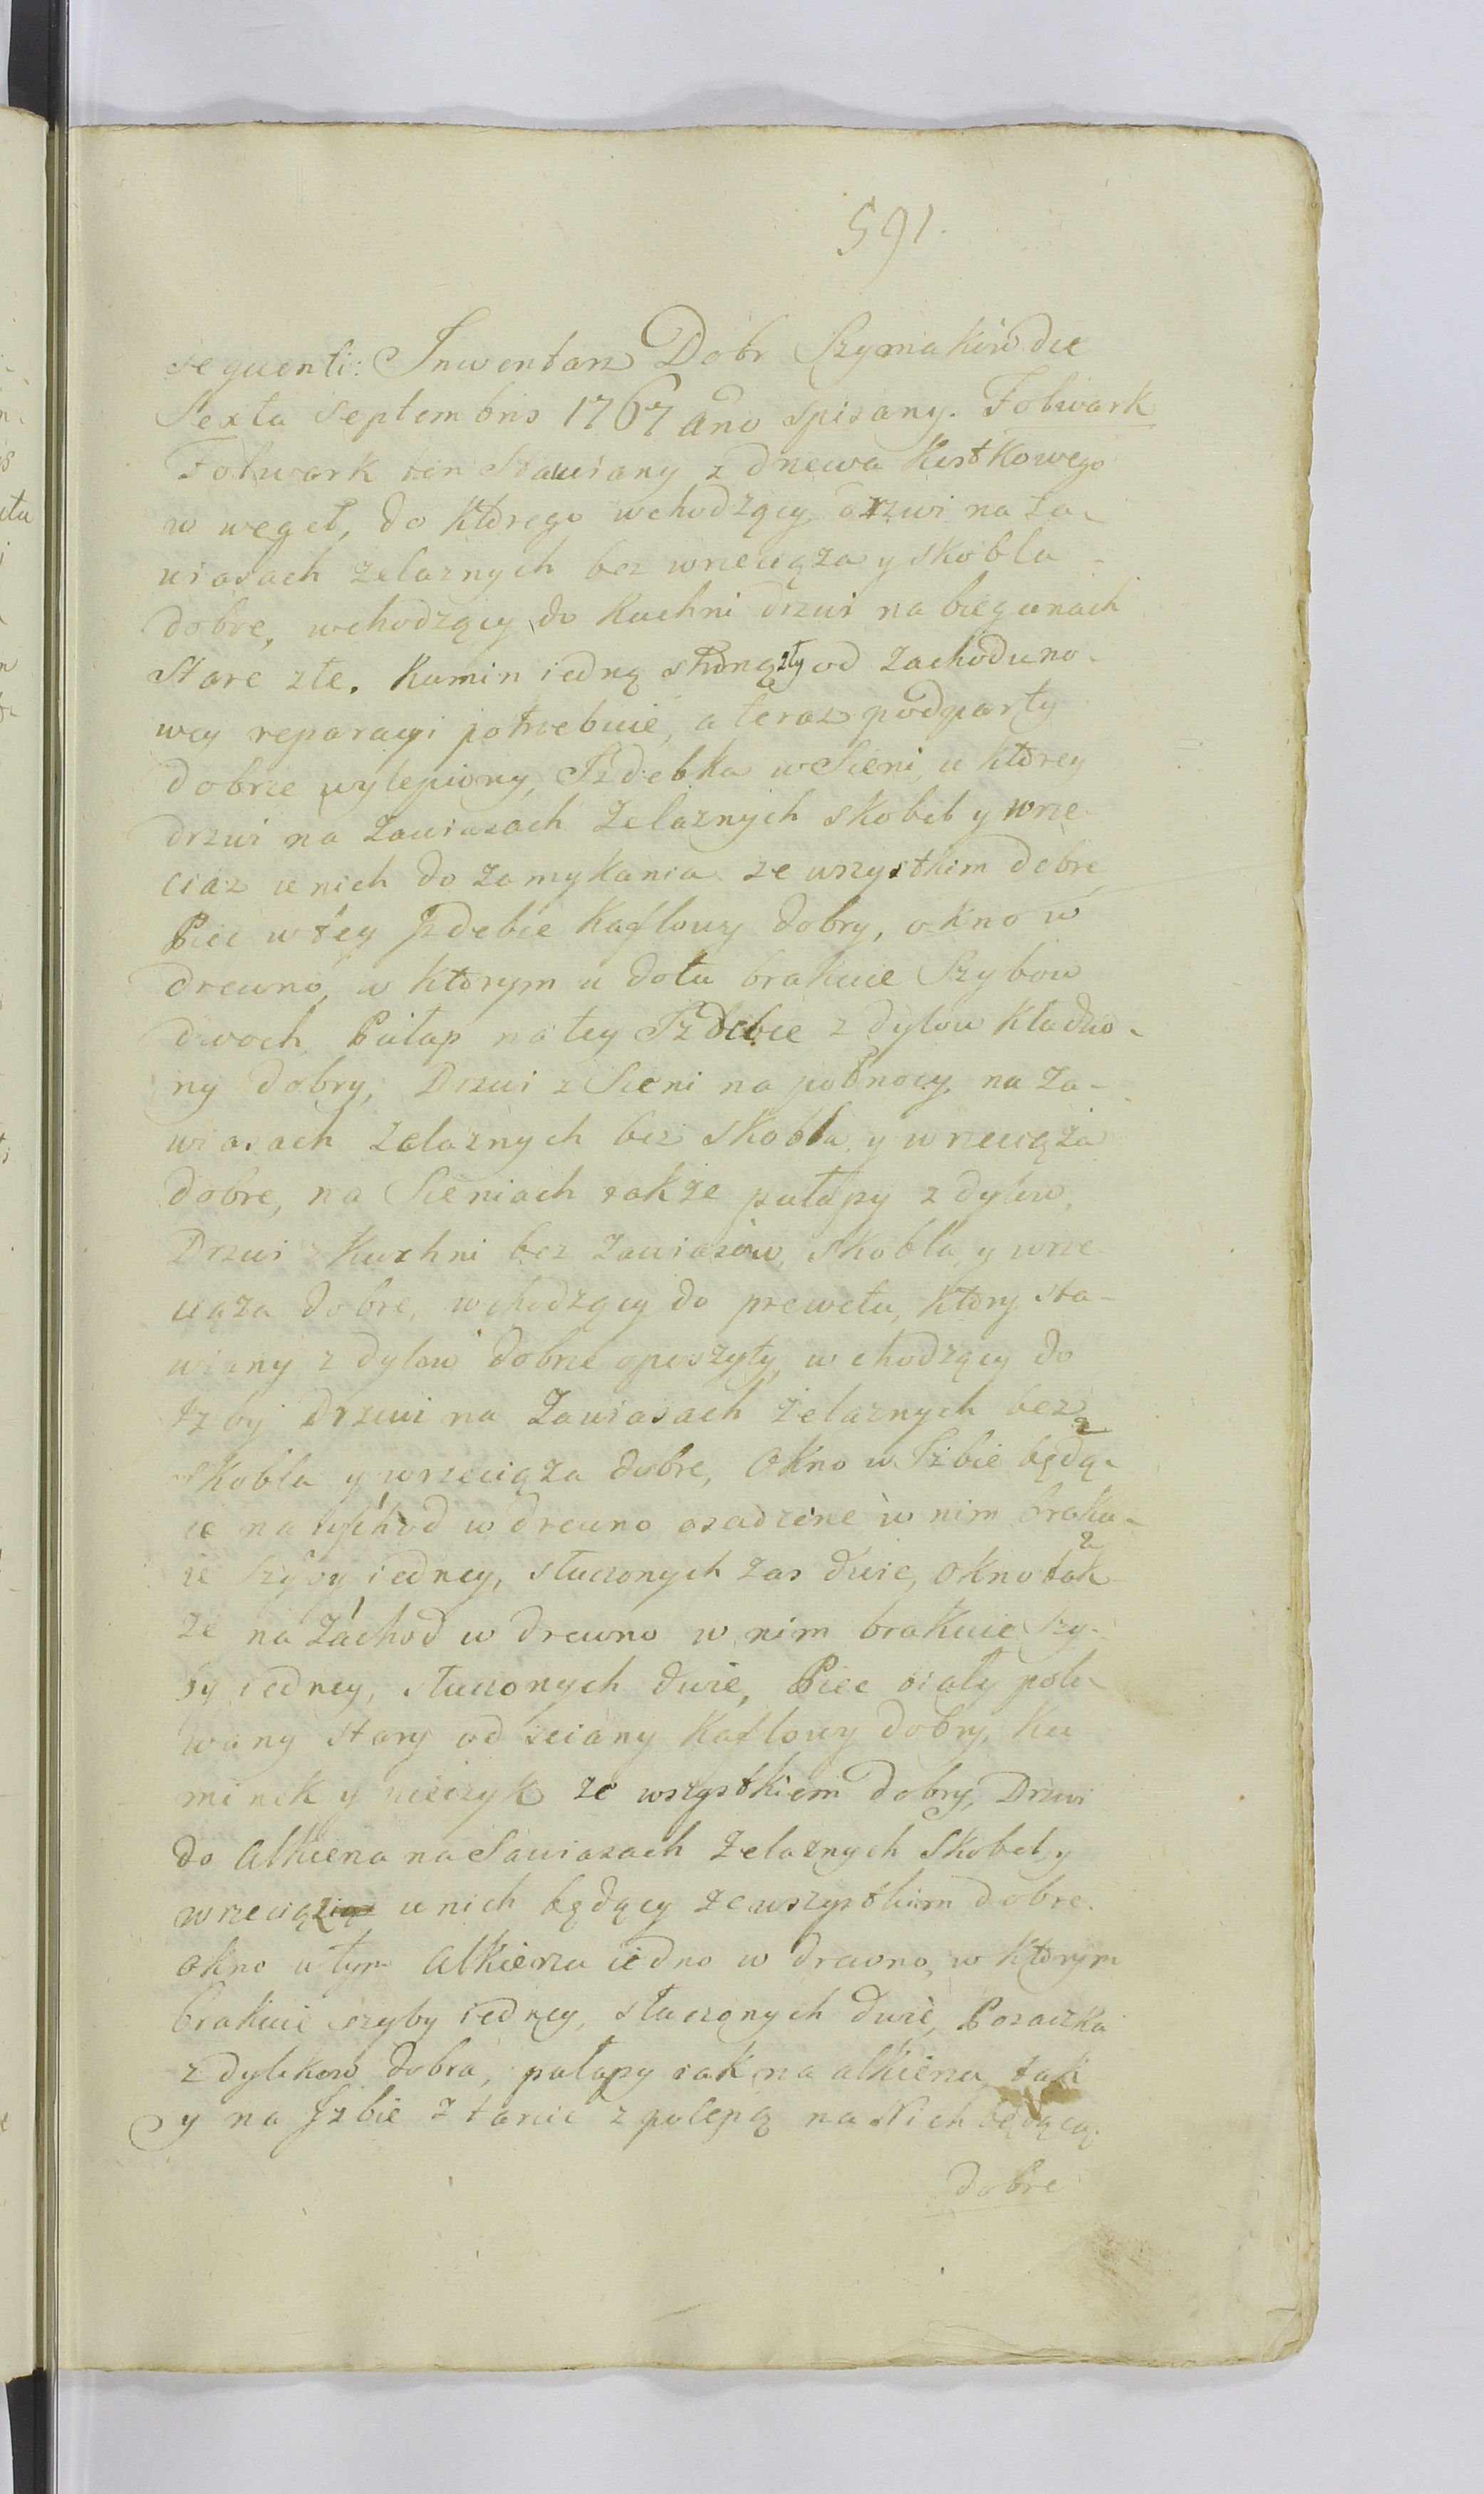 591.
sequenti: Inwentarz Dobr Szymakow die
Sexta Septembris 1767 ano spisany. Folwark
Folwark ten Stawiany z drzewa Kostkowego
w węgeł, do Ktorego wchodzący drzwi na za-
wiasach zelaznych bez wrzeciąza y skobla
dobre, wchodzący do Kuchni drzwi na biegunach
Stare złe. Kamin iedną stroną zły od zachodu no-
wey reparacyi potrzebuie, a teraz podparty
dobrze wylepiony, Izdebka w Sieni, u Ktorey
drzwi na zawiasach Zelaznych skobel y wrze
ciąz u nich do zamykania ze wszystkim dobre
Piec w tey Izdebce Kaflowy dobry, okno w
drewno, w Ktorym u dołu brakuie Szybow
dwoch Pułap na tey Izdebce z dylow Kładzio-
ny dobry, Drzwi z Sieni na połnocy na Za-
wiasach zelaznych bez skobla y wrzeciąża
dobre, na Sieniach także pułapy z dylow,
Drzwi z Kuchni bez Zawiasow, Skobla, y wrze
ciąza dobre, wchodzący do prewetu, Ktory sta-
wiany z dylow dobrze oposzyty, wchodzący do
Izby Drzwi na Zawiasach żelaznych bez
Skobla y wrzeciąza dobre, Okno w Izbie będą-
ce na wschod w drewno osadzone w nim braku-
ie szyby iedney, stłuczonych zas dwie, Okno tak
że na Záchod w drewno w nim brakuie Szy-
by iedney, stłuczonych dwie, Piec biały polu-
wany stary od sciany Kaflowy dobry, Ku
minek y pieczyk ze wszystkiem dobry, Drzwi
do Alkierza na Sawiasach Zelaznych Skobel y
wrzeciąz u nich będący ze wszystkim dobre.
okno w tym Alkierzu iedno w drewno, w Ktorym
brakuie szyby iedney, stłuczonych dwie, Posadzka
z dylikow dobra, pułapy iak na alkierzu tak
y na Izbie z tarcic z polepą na Nich będącą.
dobre